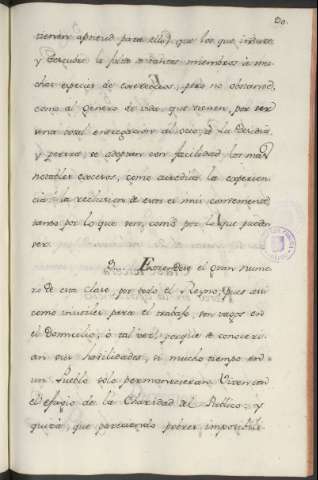 20.
tienen aptitud para ellas que los que induce
y descubre la falta de varios miembros à mu-
chas especies de exercicios, pero no obstante,
como al genero de vida que tienen por ser
una total entregacion al ocio, ò la desidia,
y pereza, se adoptan con facilidad los mas
notables excesos, como acredita la experien-
cia la reclusion de estos es mui conveniente
tanto por lo que son, como por lo que pueden
ser.
el gran nume-
ro de esta clase por todo el Reyno, pues asi
como inutiles para el trabajo, son vagos en
el Domicilio, ò tal vez, porque se conocerian
sus habilidades, si mucho tiempo en
un Pueblo solo permanecieran. Viven con
el efugio de la Charidad del Publico: y
quizà, que pareciendo pobres imposibili-